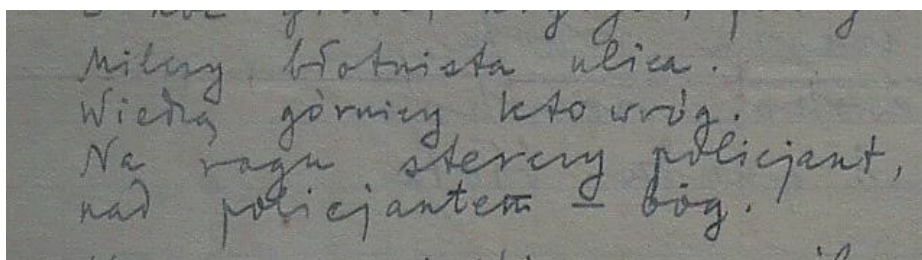 Milczy błotnista ulica.
Wiedzą górnicy kto wróg.
Na rogu sterczy policjant,
nad policjantem – bóg.